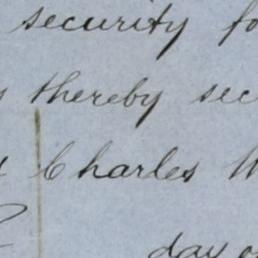 security fo
thereby sec
Charles W
day o